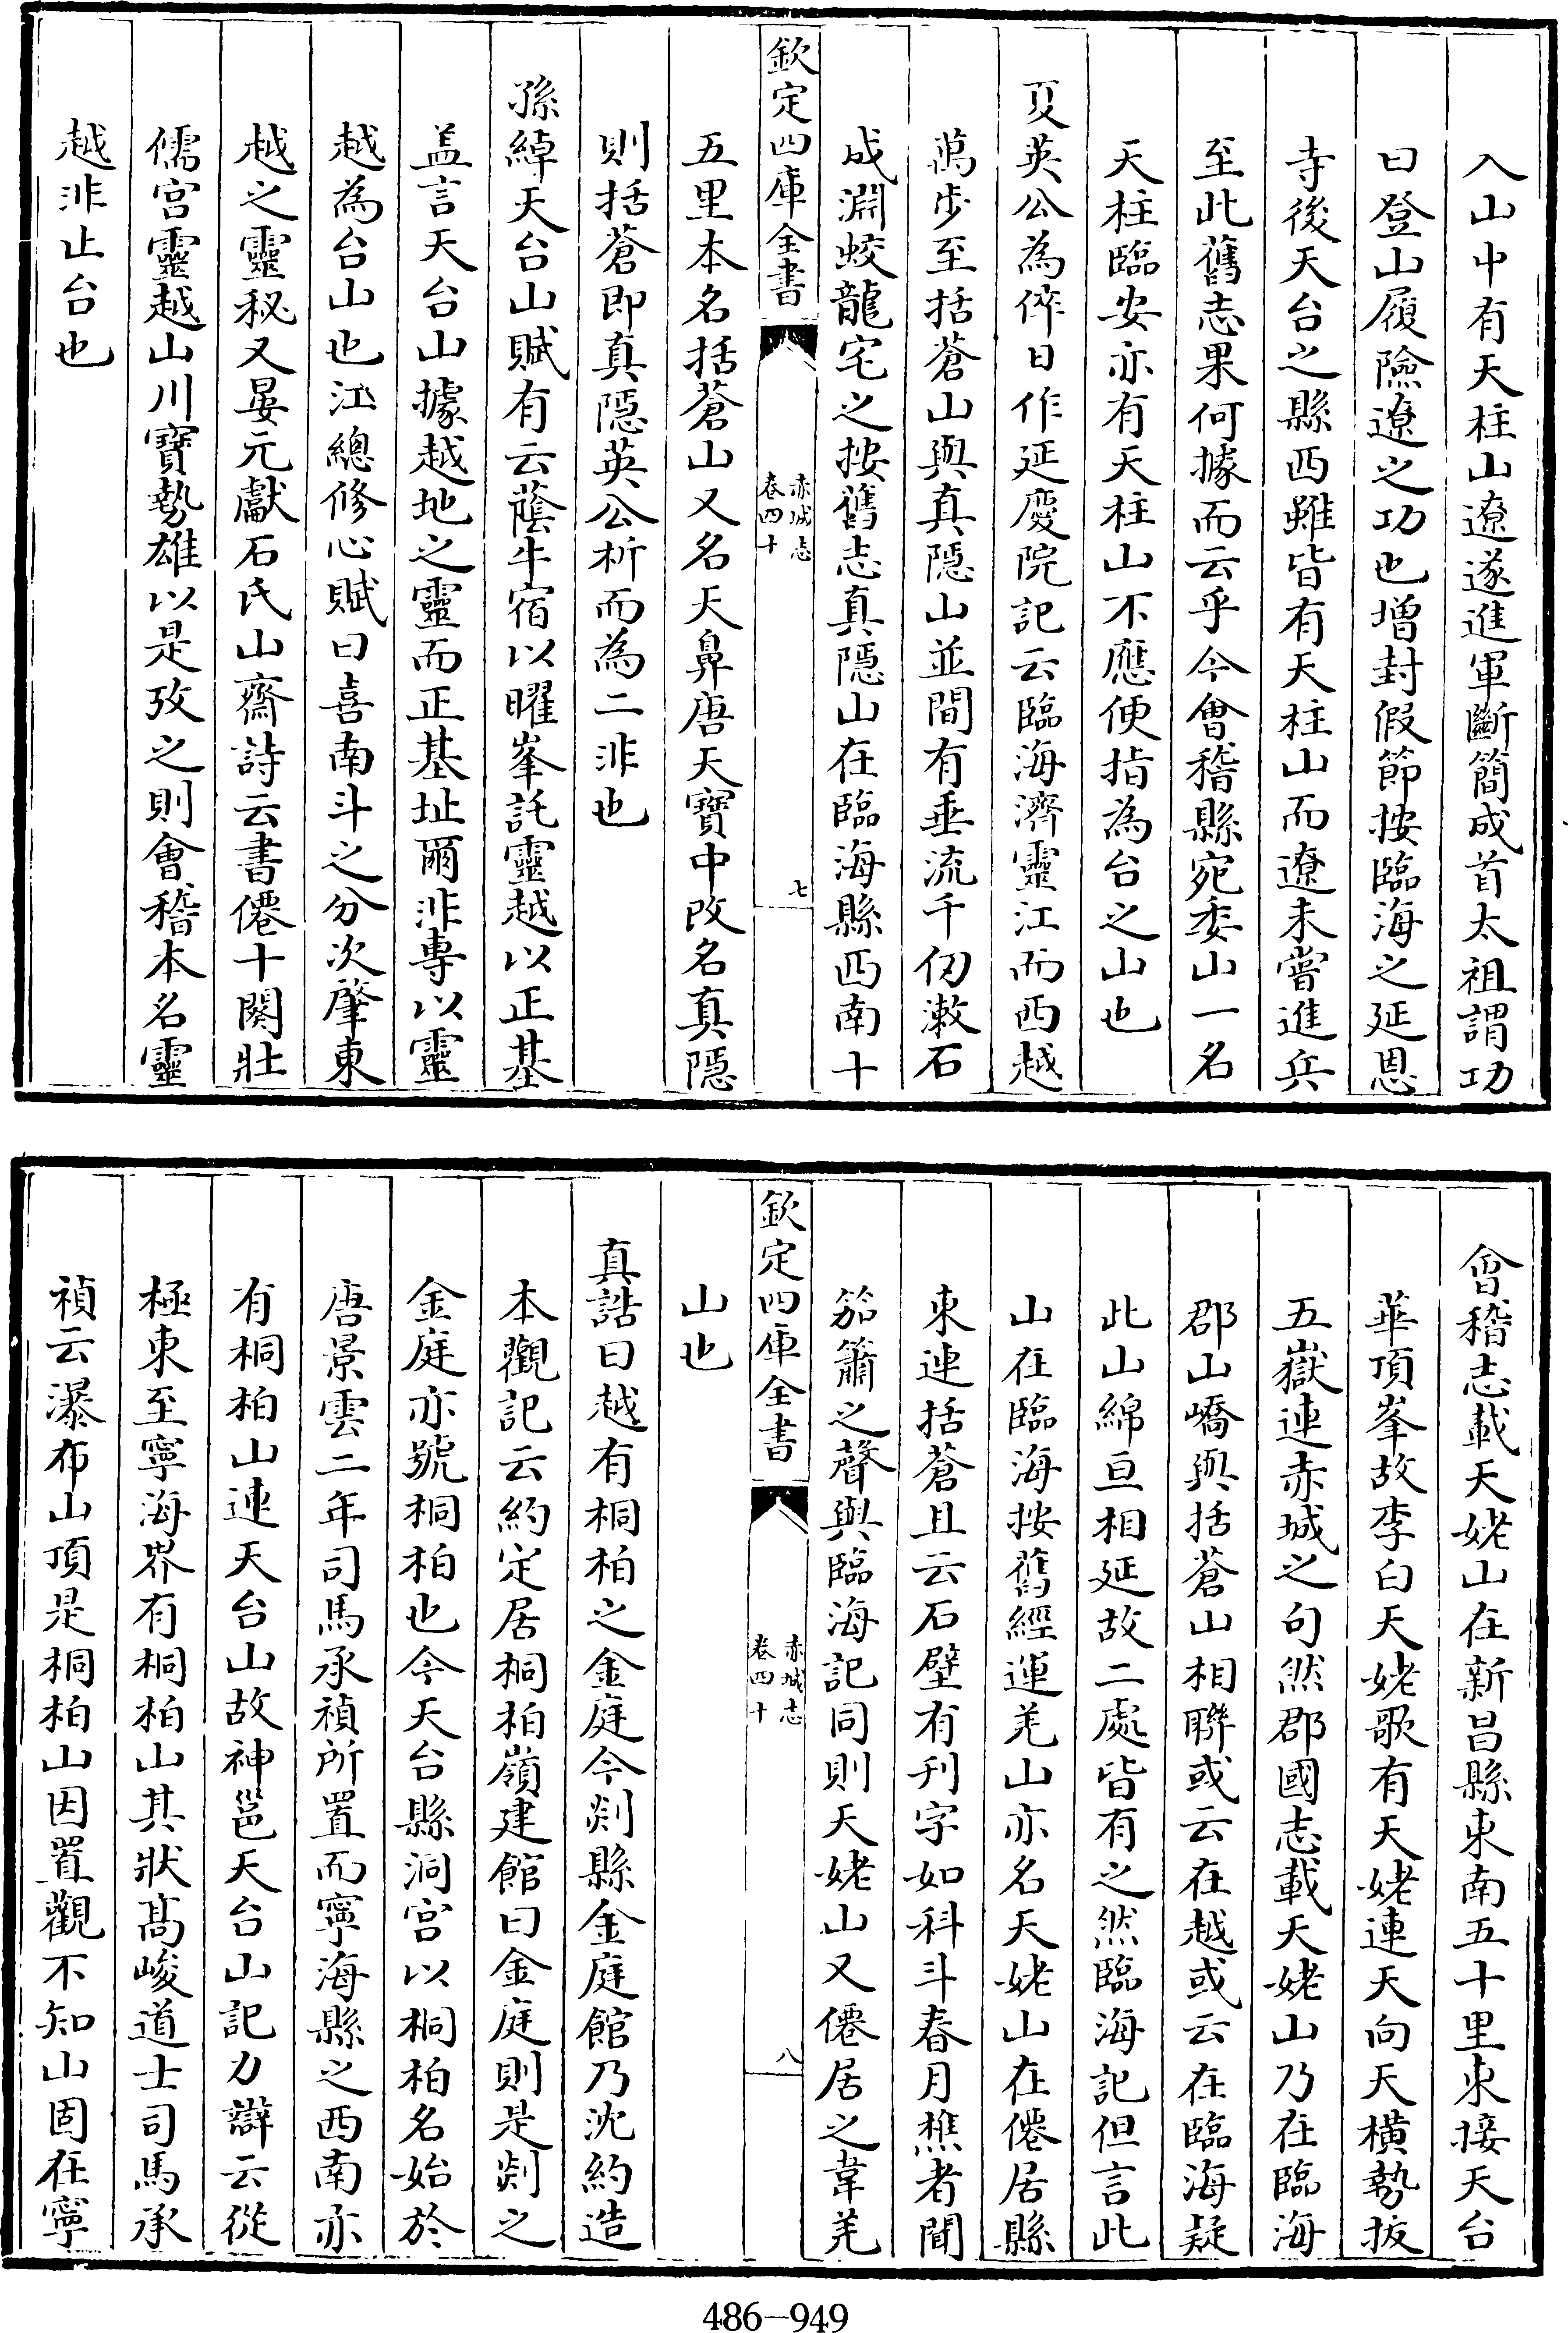 入山中有天柱山遼遂進軍斷簡成首太祖謂功
曰登山履險遼之功也增封假節按臨海之延恩
寺後天台之縣西雖皆有天柱山而遼未嘗進兵
至此舊志果何據而云乎今會稽縣宛委山一名
天柱臨安亦有天柱山不應便指為台之山也
夏英公為倅日作延慶院記云臨海濟靈江而西越
萬步至括蒼山與真隱山並間有垂流千仞潄石
成淵蛟龍宅之按舊志真隱山在臨海縣西南十
欽定四庫全書
赤城志
卷四十
七
五里本名括蒼山又名天鼻唐天寶中改名真隱
則括蒼即真隱英公析而為二非也
孫綽天台山賦有云蔭牛宿以曜峯託靈越以正基
盖言天台山據越地之靈而正基址爾非專以靈
越為台山也江總修心賦曰喜南斗之分次肇東
越之靈秘又晏元獻石氏山齋詩云書僊十閡壯
儒宫靈越山川寶勢雄以是攷之則會稽本名靈
越非止台也
會稽志載天姥山在新昌縣東南五十里東接天台
華頂峯故李白天姥歌有天姥連天向天橫勢拔
五嶽連赤城之句然郡國志載天姥山乃在臨海
郡山嶠與括蒼山相聯或云在越或云在臨海疑
此山綿亘相延故二處皆有之然臨海記但言此
山在臨海按舊經運羌山亦名天姥山在僊居縣
東連括蒼且云石壁有刋字如科斗春月樵者聞
笳簫之聲與臨海記同則天姥山又僊居之韋羌
欽定四庫全書
赤城志
卷四十
八
山也
真誥曰越有桐柏之金庭今剡縣金庭館乃沈約造
本觀記云約定居桐柏嶺建館曰金庭則是剡之
金庭亦號桐柏也今天台縣洞宫以桐柏名始於
唐景雲二年司馬承禎所置而寧海縣之西南亦
有桐柏山連天台山故神邕天台山記力辯云從
極東至寧海界有桐柏山其狀髙峻道士司馬承
禎云瀑布山頂是桐柏山因置觀不知山固在寧
486-949